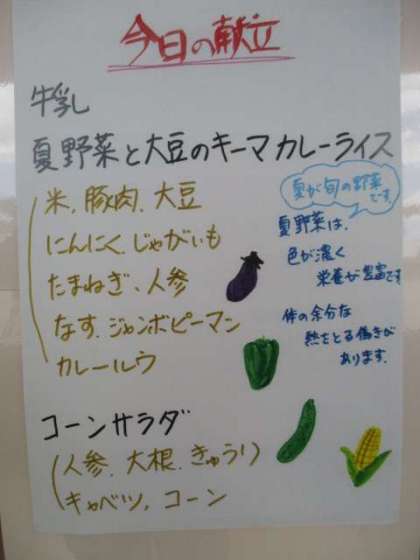 今日の献立
牛乳
夏野菜と大豆のキーマカレーライス
米、豚肉、大豆
にんにく、じゃがいも
たまねぎ、人参
なす、ジャンボピーマン
カレールウ
夏が旬の野菜
です。
夏野菜は、
色が濃く
栄養が豊富です
体の余分な
熱をとる働きが
あります。
コーンサラダ
(人参、大根、きゅうり)
キャベツ、コーン